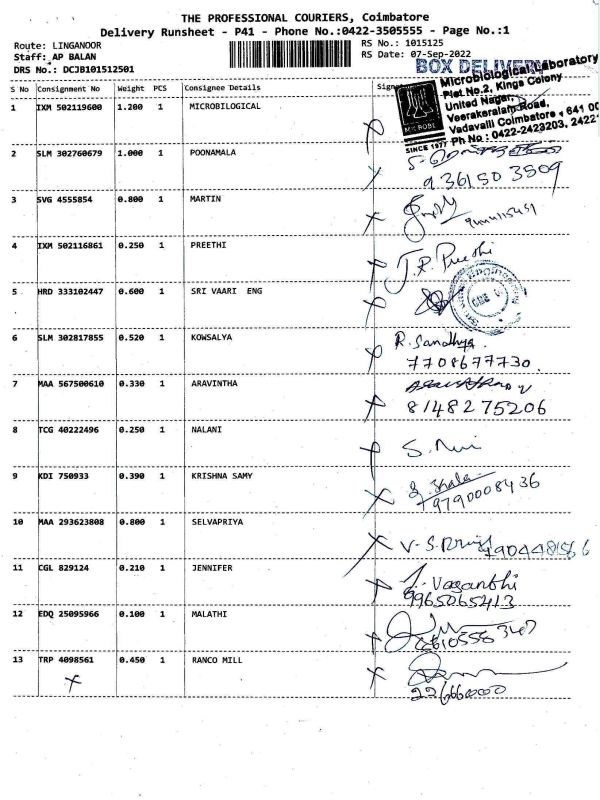 THE PROFESSIONAL COURIERS, Coimbatore
Delivery Runsheet - P41 - Phone No.:0422-3505555 - Page No.:1
Route: LINGANOOR
Staff: AP BALAN
DRS No.: DCJB101512501
RS No.: 1015125
RS Date: 07-Sep-2022
BOX DELIVERY
S No Consignment No Weight PCS Consignee Details
Microbiological Laboratory
Plat No.2, Kings Colony
United Nagar,
Veerakeralam Road,
Vadavalli Coimbatore
Ph No : 0422-2423203,
MICROBE
SINCE 1977
1 IXM 502119600 1.200 1 MICROBILOGICAL
2 SLM 302760679 1.000 1 POONAMALA
9361503509
3 SVG 4555854 0.800 1 MARTIN
4 IXM 502116861 0.250 1 PREETHI J.R. Preethi
5 HRD 333102447 0.600 1 SRI VAARI ENG
6 SLM 302817855 0.520 1 KOWSALYA R. Sandhya
7708677730.
7 MAA 567500610 0.330 1 ARAVINTHA
8148275206
8 TCG 40222496 0.250 1 NALANI
9 KDI 750933 0.390 1 KRISHNA SAMY
9790008436
10 MAA 293623808 0.800 1 SELVAPRIYA
11 CGL 829124 0.210 1 JENNIFER
9965065413
12 EDQ 25095966 0.100 1 MALATHI
13 TRP 4098561 0.450 1 RANCO MILL